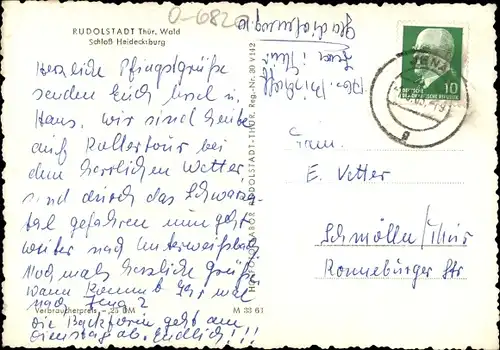 O-6820
RUDOLSTADT Thür. Wald
Schloß Heidecksburg
Herzliche Pfingstgrüße
senden Euch Ursel u.
Hans. wir sind heute
auf Rollertour bei
dem herrlichen Wetter
sind durch das Schwarza-
tal gefahren nun geht
weiter nach Unterweißbach
Nochmals herzliche Grüße
wann kommt Ihr mal
nach Jena?
die Backform geht am
Dienstag ab. Endlich!!!
Verbraucherpreis -,25 DM
M 33 61
RUDOLSTADT-THÜR. Reg.-Nr. 30 V 142
Jena i. Thür.
JENA
10
DEUTSCHE
DEMOKRATISCHE REPUBLIK
g
Fam.
E. Vetter
Schmölln/Thür
Ronneburger Str